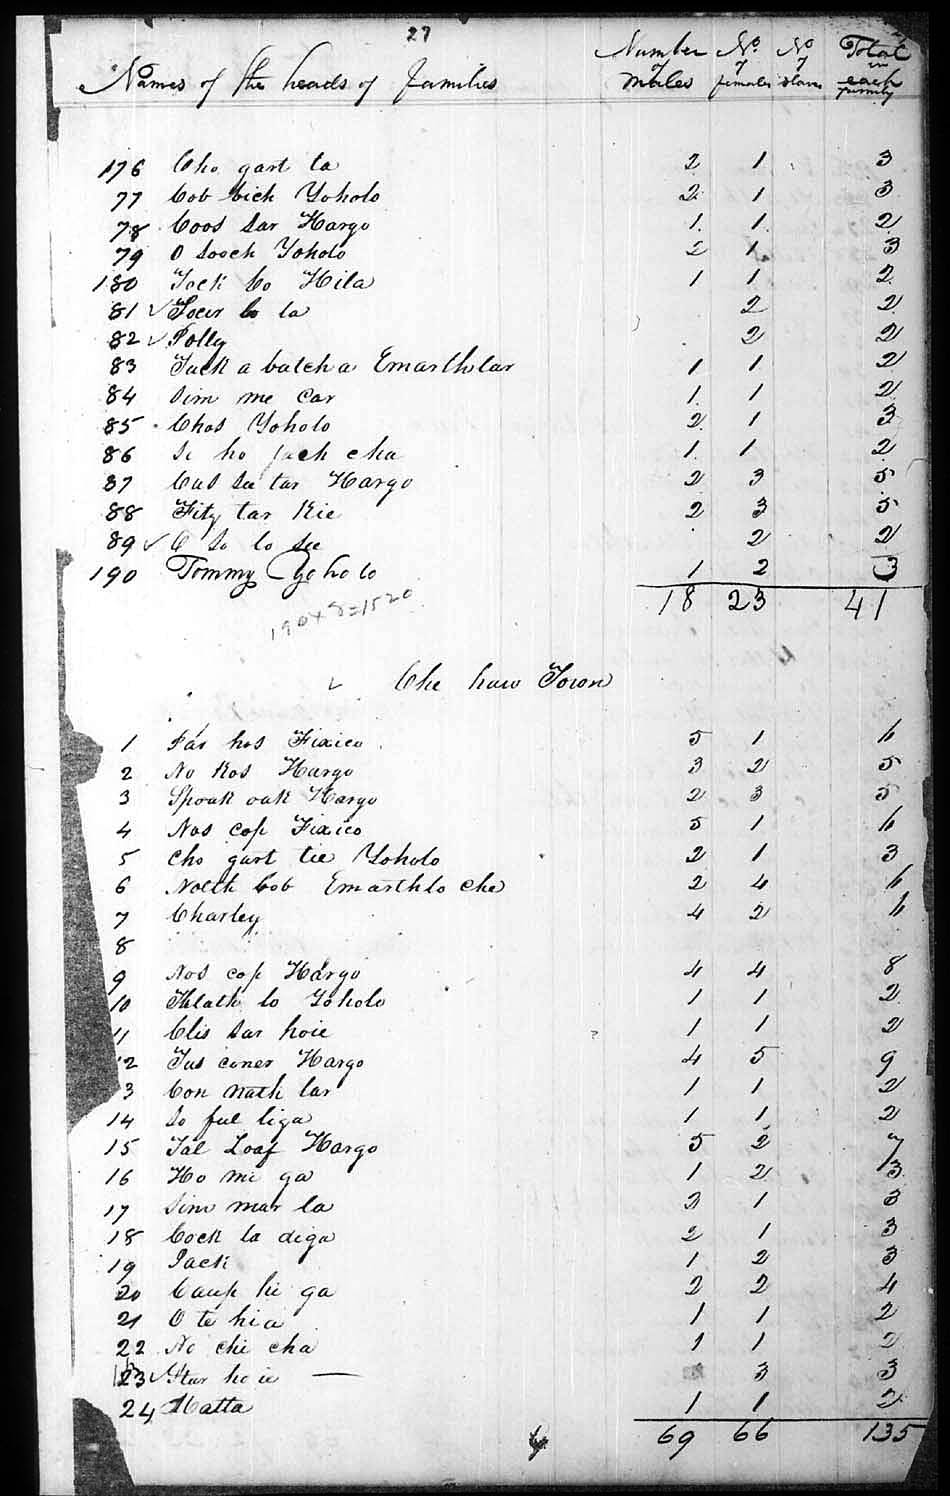 27
Names of the heads of families Number of males No. of females No of slaves Total in each family
176 Cho gart la 2 1 3
77 Cob bick Yoholo 2 1 3
78 Coos sar Hargo 1 1 2
79 O sooch Yoholo 2 1 3
180 Tock Co Hila 1 1 2
81 ✓ Socir lo la 2 2
82 ✓ Polly 2 2
83 Tuck a batch a Emarthlar 1 1 2
84 Sim me car 1 1 2
85 Chos Yoholo 2 1 3
86 Si ho jach cha 1 1 2
87 Cus see tar Hargo 2 3 5
88 Fity tar Kie 2 3 5
89 ✓ O so lo see 2 2
190 Tommy Yoholo 1 2 3
18 23 41
190 x 8 = 1520
✓ Che haw Town
1 Par hos Fixico 5 1 6
2 No Kos Hargo 3 2 5
3 Spoak oak Hargo 2 3 5
4 Nos cop Fixico 5 1 6
5 Cho gart tee Yoholo 2 1 3
6 Noeth Cob Emarthlo che 2 4 6
7 Charley 4 2 6
8
9 Nos cop Hargo 4 4 8
10 Thlath lo Yoholo 1 1 2
11 Clis sar hoie 1 1 2
12 Tus coner Hargo 4 5 9
3 Con nath lar 1 1 2
14 So ful liga 1 1 2
15 Tal Loaf Hargo 5 2 7
16 Ho me ga 1 2 3
17 Sim mar la 2 1 3
18 Cock la diga 2 1 3
19 Jack 1 2 3
20 Caup hi ga 2 2 4
21 O te hia 1 1 2
22 No chi cha 1 1 2
23 ✓ Star ho ie — 3 3
24 Hatta 1 1 2
69 66 135